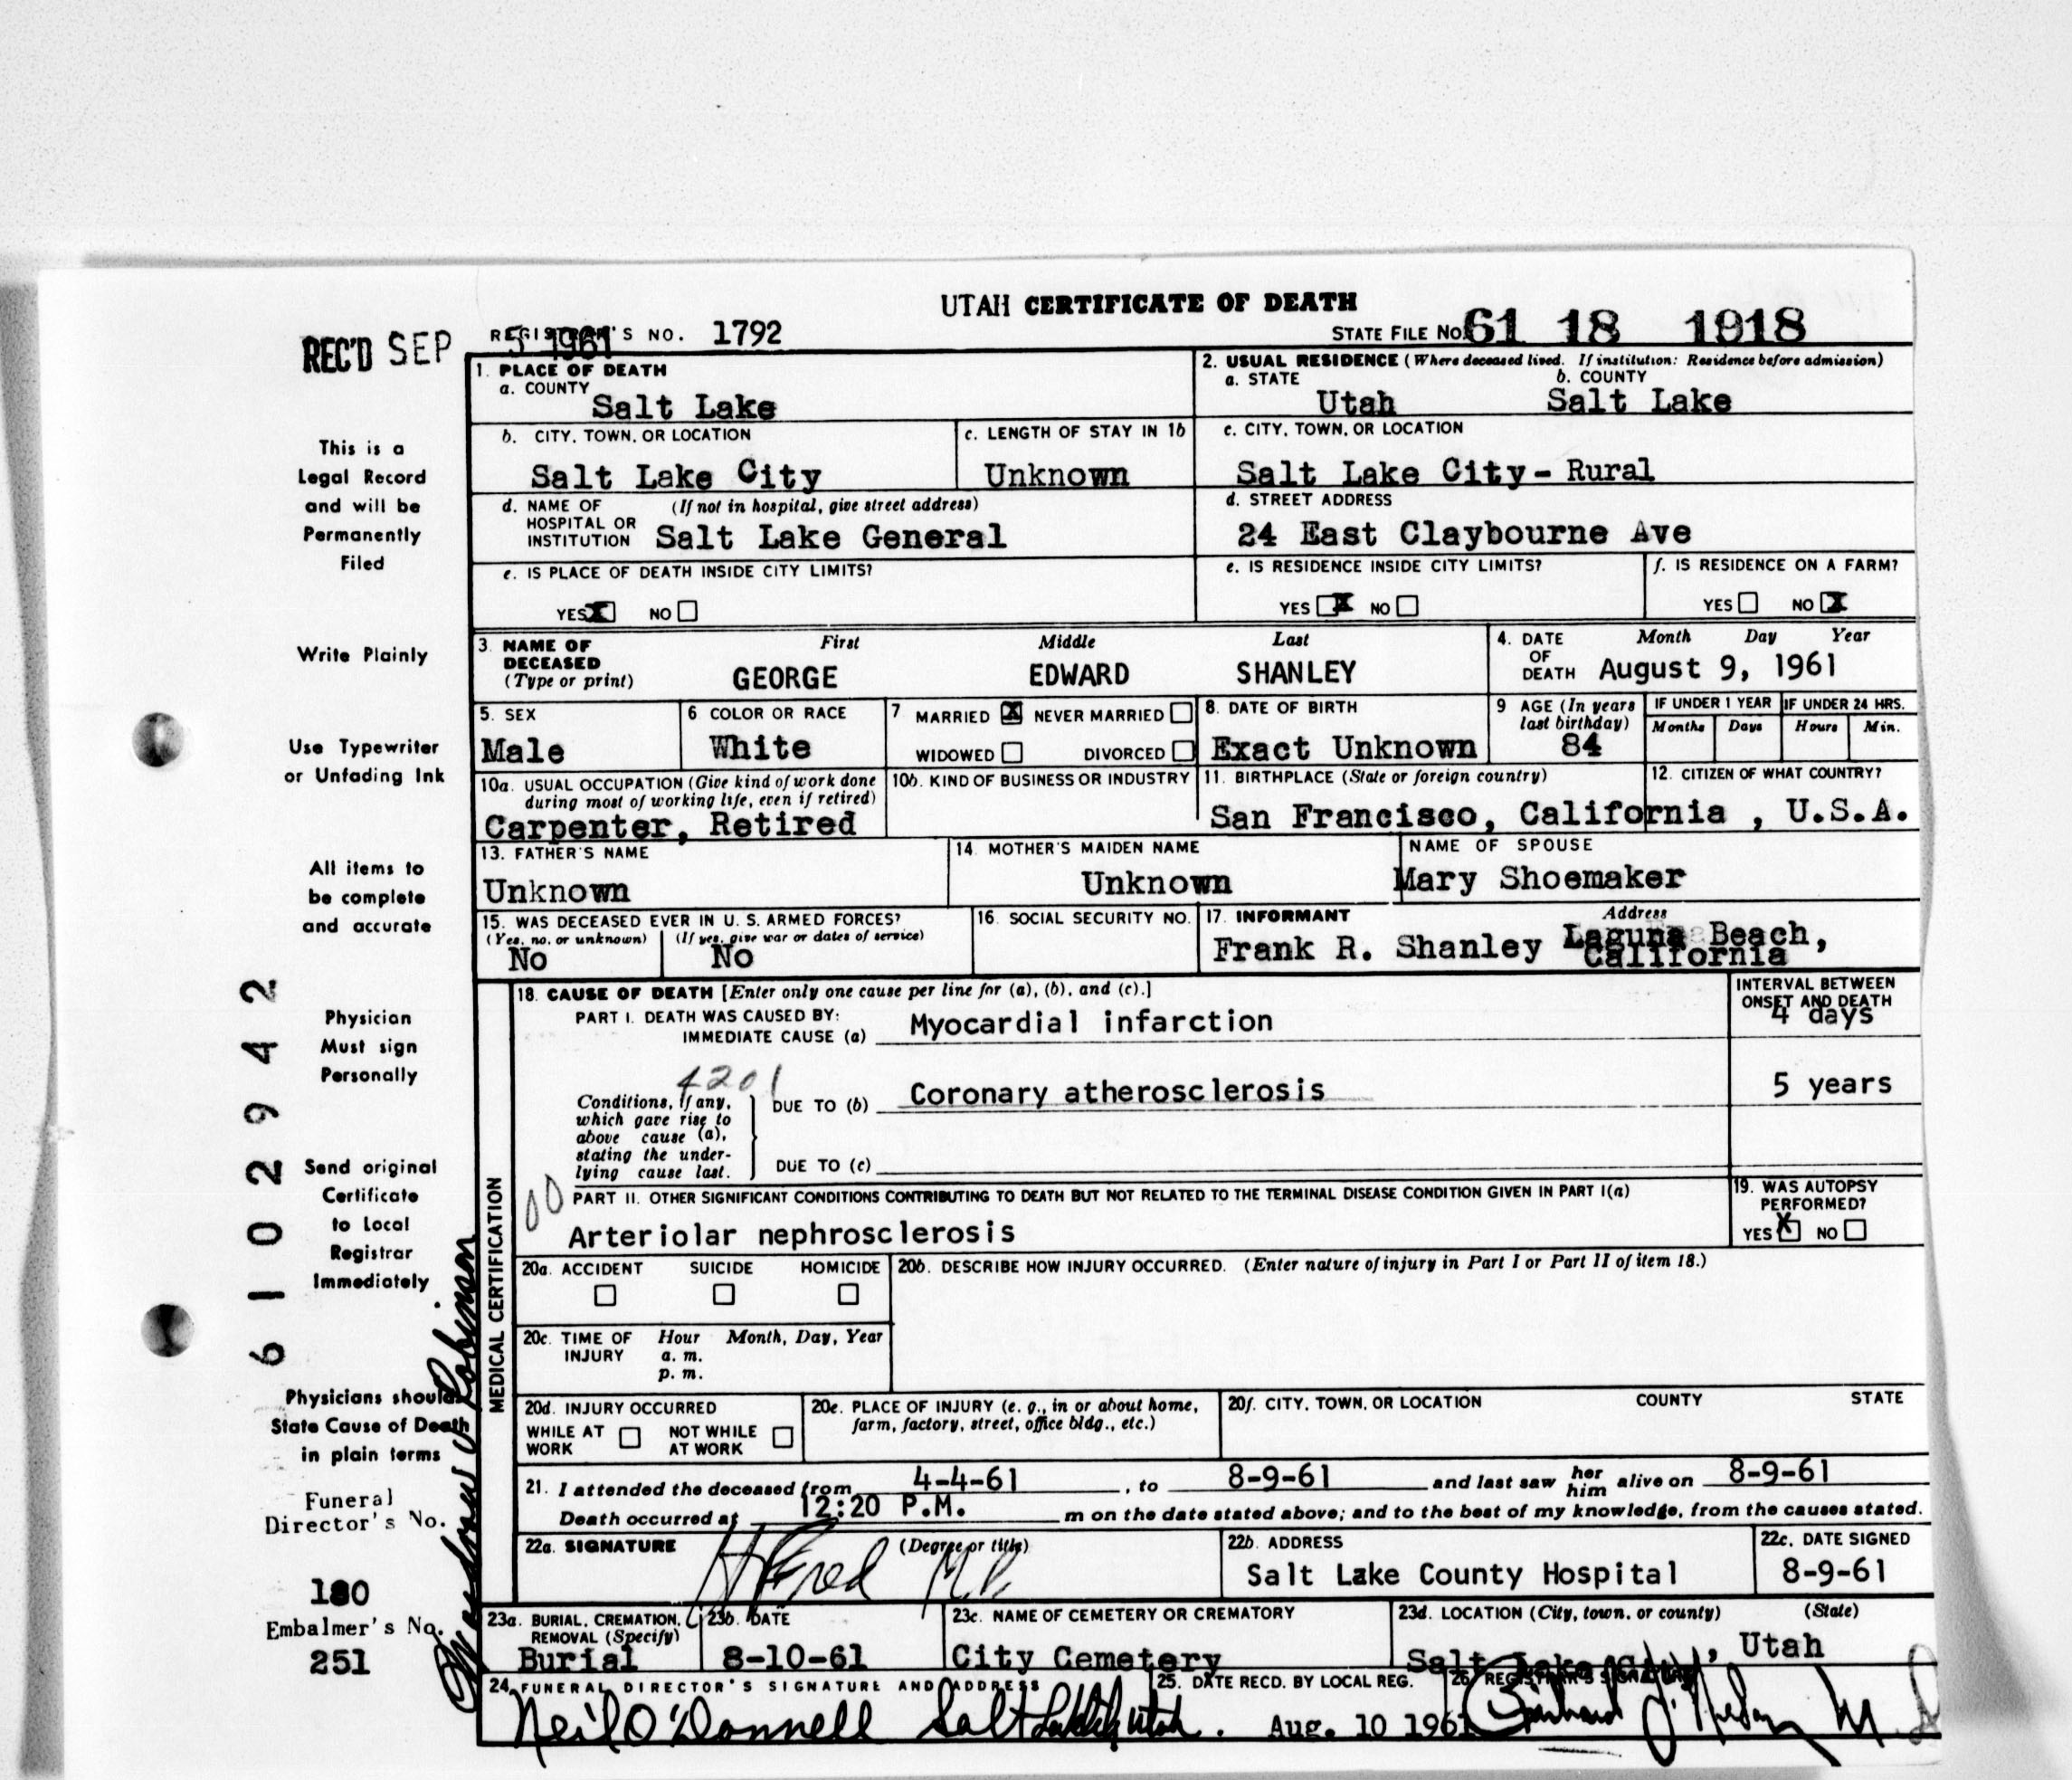 UTAH CERTIFICATE OF DEATH
REC'D SEP 5 1961
REGISTRAR'S NO. 1792
STATE FILE NO. 61 18 1918
1. PLACE OF DEATH
a. COUNTY
Salt Lake
2. USUAL RESIDENCE (Where deceased lived. If institution: Residence before admission)
a. STATE b. COUNTY
Utah Salt Lake
b. CITY, TOWN, OR LOCATION
Salt Lake City
c. LENGTH OF STAY IN 1b
Unknown
c. CITY, TOWN, OR LOCATION
Salt Lake City- Rural
d. NAME OF HOSPITAL OR INSTITUTION (If not in hospital, give street address)
Salt Lake General
d. STREET ADDRESS
24 East Claybourne Ave
e. IS PLACE OF DEATH INSIDE CITY LIMITS?
YES X NO
e. IS RESIDENCE INSIDE CITY LIMITS?
YES X NO
f. IS RESIDENCE ON A FARM?
YES NO X
3. NAME OF DECEASED (Type or print)
First Middle Last
GEORGE EDWARD SHANLEY
4. DATE OF DEATH
Month Day Year
August 9, 1961
5. SEX
Male
6 COLOR OR RACE
White
7 MARRIED X NEVER MARRIED
WIDOWED DIVORCED
8. DATE OF BIRTH
Exact Unknown
9 AGE (In years last birthday)
84
IF UNDER 1 YEAR
Months Days
IF UNDER 24 HRS.
Hours Min.
10a. USUAL OCCUPATION (Give kind of work done during most of working life, even if retired)
Carpenter, Retired
10b. KIND OF BUSINESS OR INDUSTRY
11. BIRTHPLACE (State or foreign country)
San Francisco, California
12. CITIZEN OF WHAT COUNTRY?
, U.S.A.
13. FATHER'S NAME
Unknown
14. MOTHER'S MAIDEN NAME
Unknown
NAME OF SPOUSE
Mary Shoemaker
15. WAS DECEASED EVER IN U. S. ARMED FORCES?
(Yes, no, or unknown) (If yes, give war or dates of service)
No No
16. SOCIAL SECURITY NO.
17. INFORMANT Address
Frank R. Shanley Laguna Beach,
California
MEDICAL CERTIFICATION
18. CAUSE OF DEATH [Enter only one cause per line for (a), (b), and (c).]
INTERVAL BETWEEN ONSET AND DEATH
PART I. DEATH WAS CAUSED BY:
IMMEDIATE CAUSE (a) Myocardial infarction
4 days
4201
Conditions, if any, which gave rise to above cause (a), stating the underlying cause last.
DUE TO (b) Coronary atherosclerosis
5 years
DUE TO (c)
PART II. OTHER SIGNIFICANT CONDITIONS CONTRIBUTING TO DEATH BUT NOT RELATED TO THE TERMINAL DISEASE CONDITION GIVEN IN PART I(a)
00
Arteriolar nephrosclerosis
19. WAS AUTOPSY PERFORMED?
YES X NO
20a. ACCIDENT SUICIDE HOMICIDE
20b. DESCRIBE HOW INJURY OCCURRED. (Enter nature of injury in Part I or Part II of item 18.)
20c. TIME OF INJURY
Hour Month, Day, Year
a. m.
p. m.
20d. INJURY OCCURRED
WHILE AT WORK NOT WHILE AT WORK
20e. PLACE OF INJURY (e. g., in or about home, farm, factory, street, office bldg., etc.)
20f. CITY, TOWN, OR LOCATION COUNTY STATE
21. I attended the deceased from 4-4-61, to 8-9-61 and last saw her him alive on 8-9-61
Death occurred at 12:20 P.M. m on the date stated above; and to the best of my knowledge, from the causes stated.
22a. SIGNATURE (Degree or title)
M.D.
22b. ADDRESS
Salt Lake County Hospital
22c. DATE SIGNED
8-9-61
23a. BURIAL, CREMATION, REMOVAL (Specify)
Burial
23b. DATE
8-10-61
23c. NAME OF CEMETERY OR CREMATORY
City Cemetery
23d. LOCATION (City, town, or county) (State)
Salt Lake City, Utah
24. FUNERAL DIRECTOR'S SIGNATURE AND ADDRESS
Neil O'Donnell Salt Lake City Utah.
25. DATE RECD. BY LOCAL REG.
Aug. 10 1961
26. REGISTRAR'S SIGNATURE
This is a
Legal Record
and will be
Permanently
Filed
Write Plainly
Use Typewriter
or Unfading Ink
All items to
be complete
and accurate
Physician
Must sign
Personally
Send original
Certificate
to Local
Registrar
Immediately
Physicians should
State Cause of Death
in plain terms
Funeral
Director's No.
180
Embalmer's No.
251
61 02942
Robinson